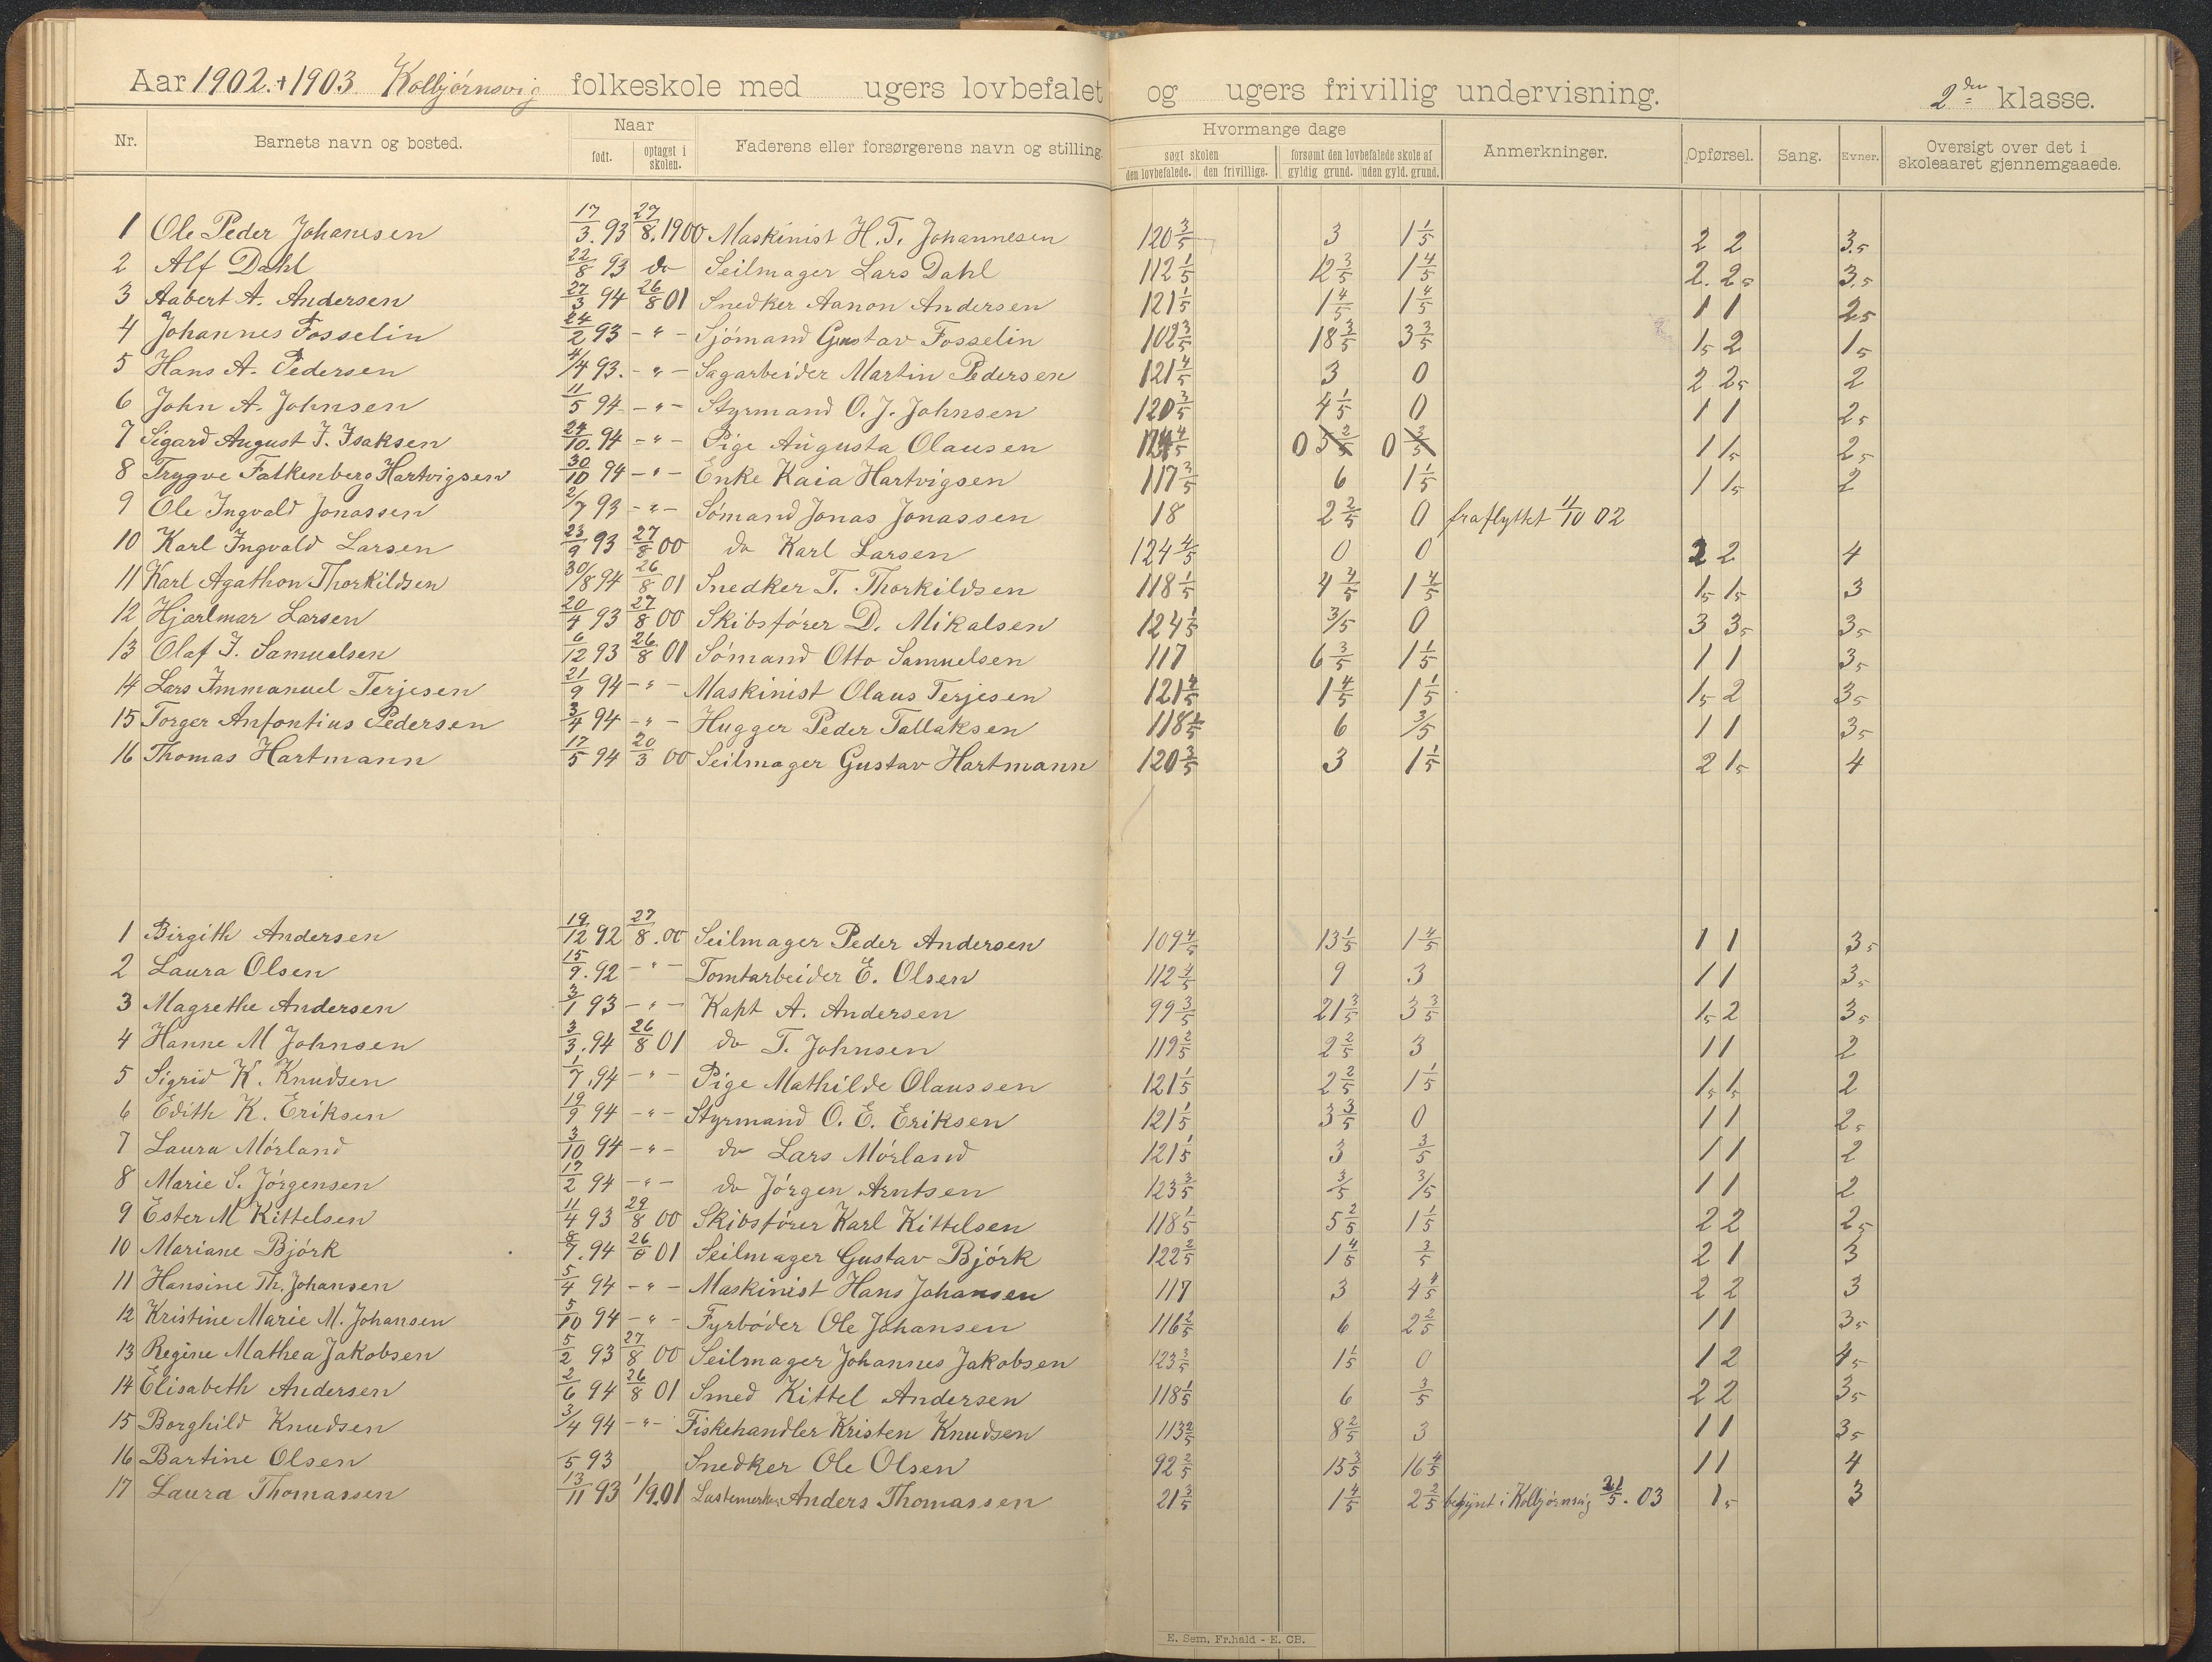 Aar 1902.+1903 Kolbjørnsvig folkeskole med ugers lovbefalet og ugers frivillig undervisning. 2den klasse.
Nr. Barnets navn og bosted. Naar født. optaget i skolen. Faderens eller forsørgerens navn og stilling. Hvormange dage søgt skolen den lovbefalede. den frivillige. forsømt den lovbefalede skole af gyldig grund. uden gyld. grund. Anmerkninger. Opførsel. Sang. Evner. Oversigt over det i skoleaaret gjennemgaaede.
1 Ole Peder Johanesen 17/3.93 27/8.1900 Maskinist H. T. Johannesen 120 3/5 3 1 1/5 2 2 3.5
2 Alf Dahl 22/8 93 do Seilmager Lars Dahl 112 1/5 12 3/5 1 4/5 2. 2.5 3.5
3 Aabert A. Andersen 27/3 94 26/8 01 Snedker Aanon Andersen 121 1/5 1 4/5 1 4/5 1 1 2 5
4 Johannes Fosselin 24/2 93 - " - Sjömand Gustav Fosselin 102 3/5 18 3/5 3 3/5 1 5 2 1 5
5 Hans A. Pedersen 4/4 93. - " - Sagarbeider Martin Pedersen 121 4/5 3 0 2 2 5 2
6 John A. Johnsen 11/5 94 - " - Styrmand O. J. Johnsen 120 3/5 4 1/5 0 1 1 2 5
7 Sigard August I. Isaksen 24/10. 94 - " - Pige Augusta Olausen 124 4/5 0 5 2/5 0 3/5 1 1 5 2 5
8 Trygve Falkenberg Hartvigsen 30/10 94 - " - Enke Kaia Hartvigsen 117 3/5 6 1 1/5 1 1 5 2
9 Ole Ingvald Jonassen 2/7 93 - " - Sömand Jonas Jonassen 18 2 2/5 0 fraflyttet 11/10 02
10 Karl Ingvald Larsen 23/9 93 27/8 00 do Karl Larsen 124 4/5 0 0 2 2 4
11 Karl Agathon Thorkildsen 30/8 94 26/8 01 Snedker T. Thorkildsen 118 1/5 4 4/5 1 4/5 1 5 1 5 3
12 Hjarlmar Larsen 20/4 93 27/8 00 Skibsförer D. Mikalsen 124 1/5 3/5 0 3 3 5 3 5
13 Olaf I. Samuelsen 6/12 93 26/8 01 Sömand Otto Samuelsen 117 6 3/5 1 1/5 1 1 3 5
14 Lars Immanuel Terjesen 21/9 94 - " - Maskinist Olaus Terjesen 121 4/5 1 4/5 1 1/5 1 5 2 3 5
15 Torger Anfontius Pedersen 3/4 94 - " - Hugger Peder Tallaksen 118 1/5 6 3/5 1 1 3 5
16 Thomas Hartmann 17/5 94 20/3 00 Seilmager Gustav Hartmann 120 3/5 3 1 1/5 2 1 5 4
1 Birgith Andersen 19/12 92 27/8.00 Seilmager Peder Andersen 109 4/5 13 1/5 1 4/5 1 1 3 5
2 Laura Olsen 15/9. 92 - " - Tomtarbeider E. Olsen 112 4/5 9 3 1 1 3 5
3 Magrethe Andersen 3/1 93 - " - Kapt A. Andersen 99 3/5 21 3/5 3 3/5 1 5 2 3 5
4 Hanne M Johnsen 3/3.94 26/8 01 do T. Johnsen 119 2/5 2 2/5 3 1 1 2
5 Sigrid K. Knudsen 1/7.94 - " - Pige Mathilde Olaussen 121 1/5 2 2/5 1 1/5 1 5 1 5 2
6 Edith K. Eriksen 19/9 94 - " - Styrmand O. E. Eriksen 121 1/5 3 3/5 0 1 1 2 5
7 Laura Mörland 3/10 94 - " - do Lars Mörland 121 1/5 3 3/5 1 1 2
8 Marie S. Jörgensen 17/2 94 - " - do Jörgen Arntsen 123 3/5 3/5 3/5 1 1 2
9 Ester M Kittelsen 11/4 93 29/8 00 Skibsförer Karl Kittelsen 118 1/5 5 2/5 1 1/5 2 2 2 5
10 Mariane Björk 8/7.94 26/8 01 Seilmager Gustav Björk 122 2/5 1 4/5 3/5 2 1 3
11 Hansine Th. Johansen 5/4 94 - " - Maskinist Hans Johansen 117 3 4 4/5 2 2 3
12 Kristine Marie M. Johansen 5/10 94 - " - Fyrböder Ole Johansen 116 2/5 6 2 2/5 1 1 3 5
13 Regine Mathea Jakobsen 5/2 93 27/8 00 Seilmager Johannes Jakobsen 123 3/5 1 1/5 0 1 2 4 5
14 Elisabeth Andersen 2/6 94 26/8 01 Smed Kittel Andersen 118 1/5 6 3/5 2 2 3 5
15 Borghild Knudsen 3/4 94 - " - Fiskehandler Kristen Knudsen 113 2/5 8 2/5 3 1 1 3 5
16 Bartine Olsen 5 93 Snedker Ole Olsen 92 2/5 15 3/5 16 4/5 1 1 4
17 Laura Thomassen 13/11 93 1/9.01 Anders Thomassen 21 3/5 1 4/5 2 2/5 begynt i Kolbjørnsvig 21/5. 03 1 5 3
E. Sem, Fr.hald - E. CB.